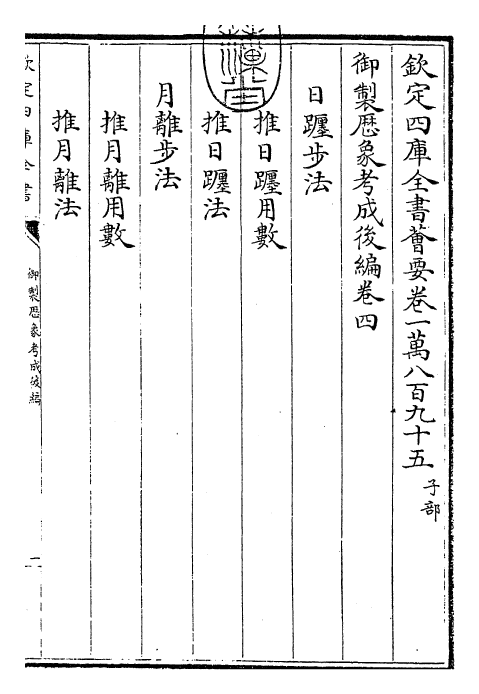 欽定四庫全書薈要卷一萬八百九十五 子部
御製歴象考成後編卷四
日躔步法
推日躔用數
推日躔法
月離步法
推月離用數
推月離法
欽定四庫全書
御製歴象考成後編